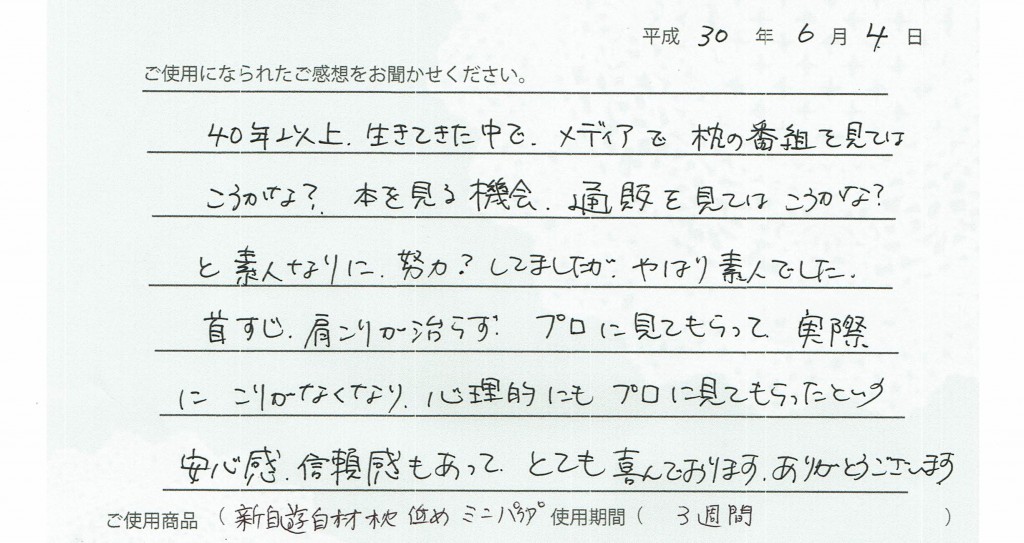 平成 30 年 6 月 4 日
ご使用になられたご感想をお聞かせください。
40年以上、生きてきた中で、メディアで 枕の番組を見ては
こうかな？ 本を見る機会、通販を見ては こうかな？
と 素人なりに、努力？してましたが、やはり素人でした。
首すじ、肩こりが治らず プロに見てもらって 実際
に こりがなくなり、心理的にも プロに見てもらったという
安心感、信頼感もあって、とても 喜んでおります。ありがとうございます
ご使用商品 （ 新自遊自材枕 低め ミニパイプ 使用期間 （ 3週間 ）